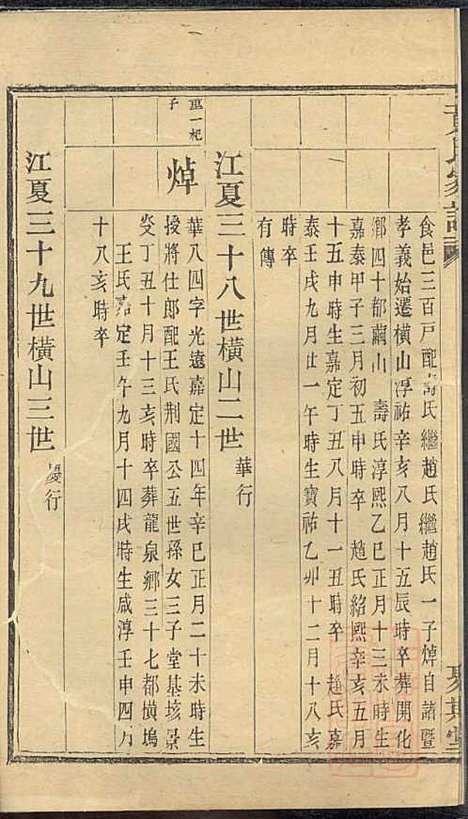 黃氏家譜
食邑三百戶配壽氏繼趙氏繼趙氏一子焯自諸暨
孝義始遷橫山淳祐辛亥八月十五辰時卒葬開化
鄉四十都繭山 壽氏淳熙乙巳正月十三未時生
嘉泰甲子三月初五申時卒 趙氏紹熙辛亥五月
十五申時生嘉定丁丑八月十一丑時卒 趙氏嘉
泰壬戌九月廿一午時生寶祐乙卯十二月十八亥
時卒
有傳
江夏三十八世橫山二世 華行
一杞
子
焯
華八四字光遠嘉定十四年辛巳正月二十未時生
授將仕郎配王氏荆國公五世孫女三子堂基垓景
炎丁丑十月十三亥時卒葬龍泉鄉三十七都橫塢
王氏嘉定壬午九月十四戌時生咸淳壬申四月
十八亥時卒
江夏三十九世橫山三世 行